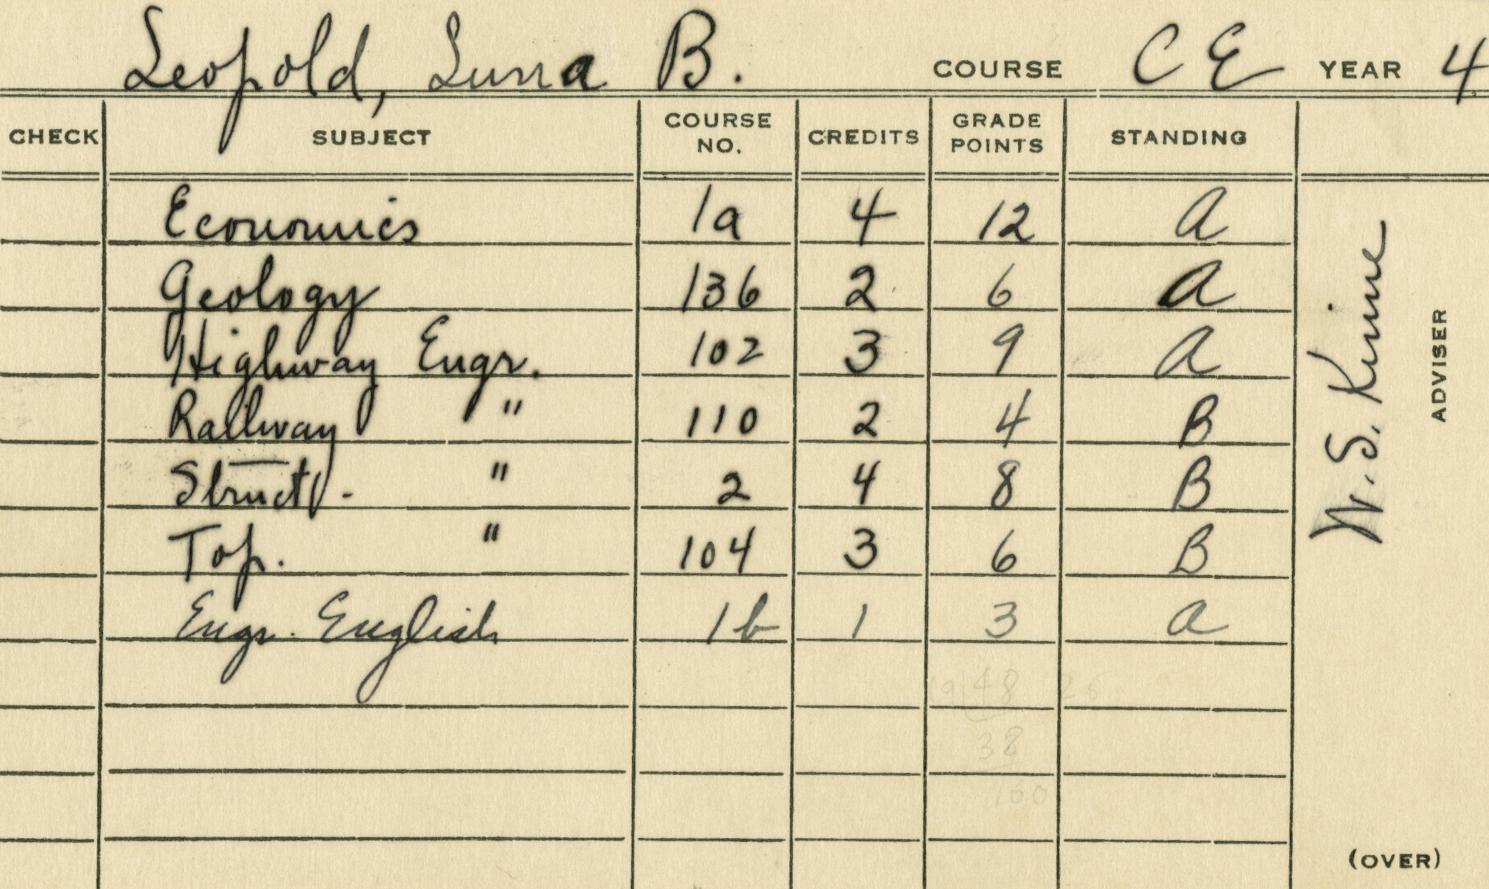 Leopold, Luna B. COURSE C E YEAR 4
CHECK SUBJECT COURSE NO. CREDITS GRADE POINTS STANDING
Economics 1a 4 12 A
Geology 136 2 6 A
Highway Engr. 102 3 9 A
Railway " 110 2 4 B
Struct. " 2 4 8 B
Top. " 104 3 6 B
Engr. English 1b 1 3 A
19 48 25
38
100
W. S. Kinne
ADVISER
(OVER)